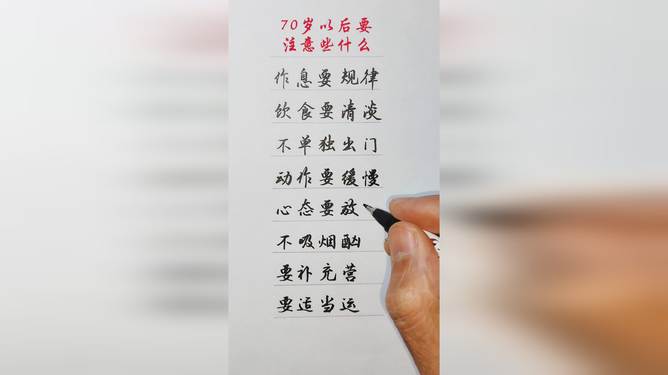 70岁以后要
注意些什么
作息要规律
饮食要清淡
不单独出门
动作要缓慢
心态要放
不吸烟酗
要补充营
要适当运